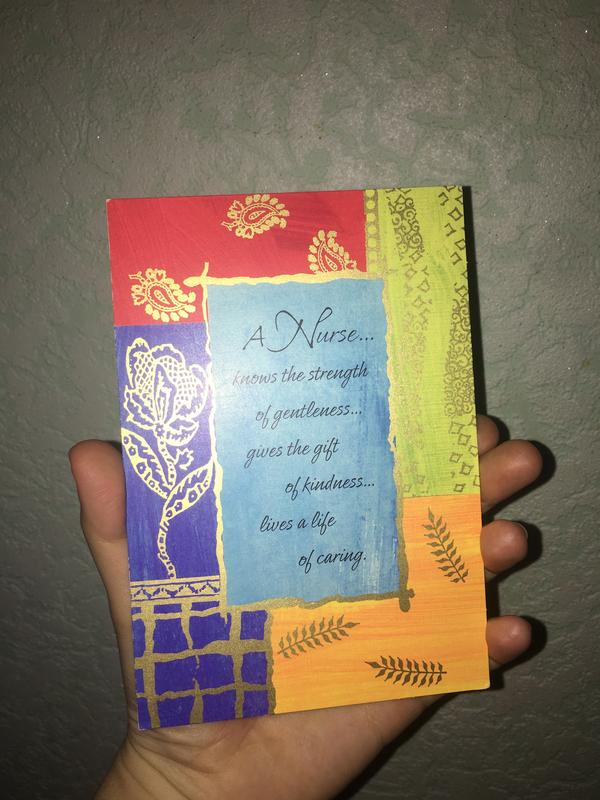 A Nurse...
knows the strength
of gentleness...
gives the gift
of kindness...
lives a life
of caring.